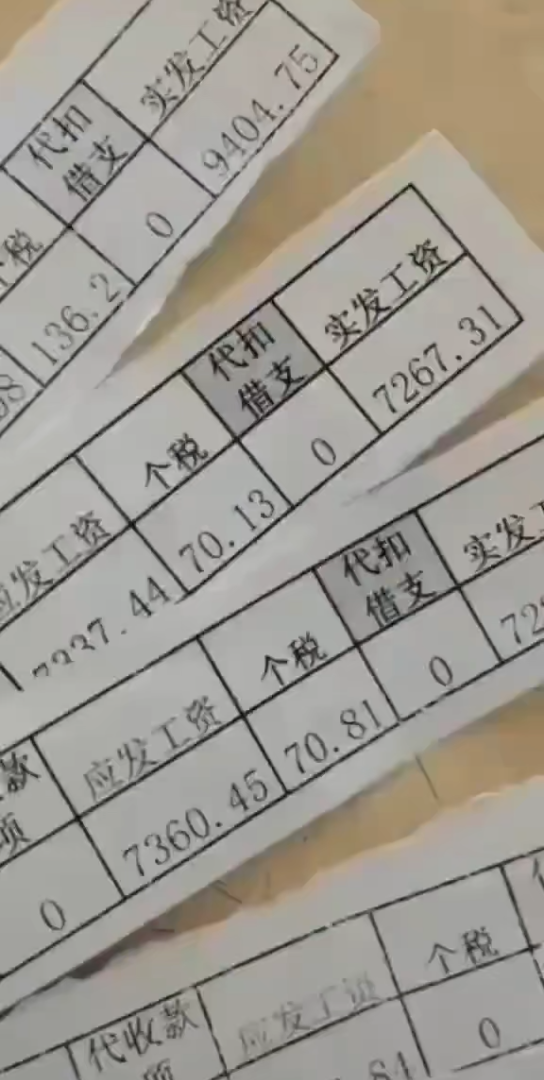 代扣
借支
实发工资
个税
136.2
0
9404.75
应发工资
个税
代扣
借支
实发工资
7337.44
70.13
0
7267.31
款
项
应发工资
个税
代扣
借支
实发工
0
7360.45
70.81
0
代收款
项
应发工资
个税
0